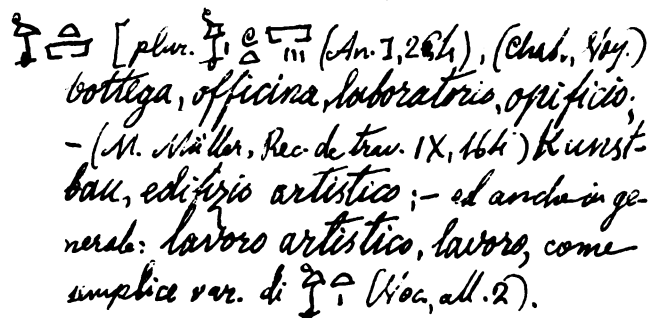 [plur. (An. I, 264), (Chab., Voy.)
bottega, officina, laboratorio, opificio;
– (M. Müller, Rec. de trav. IX, 164) Kunst-
bau, edifizio artistico; – ed anche in ge-
nerale: lavoro artistico, lavoro, come
semplice var. di (Voc., all. 2).